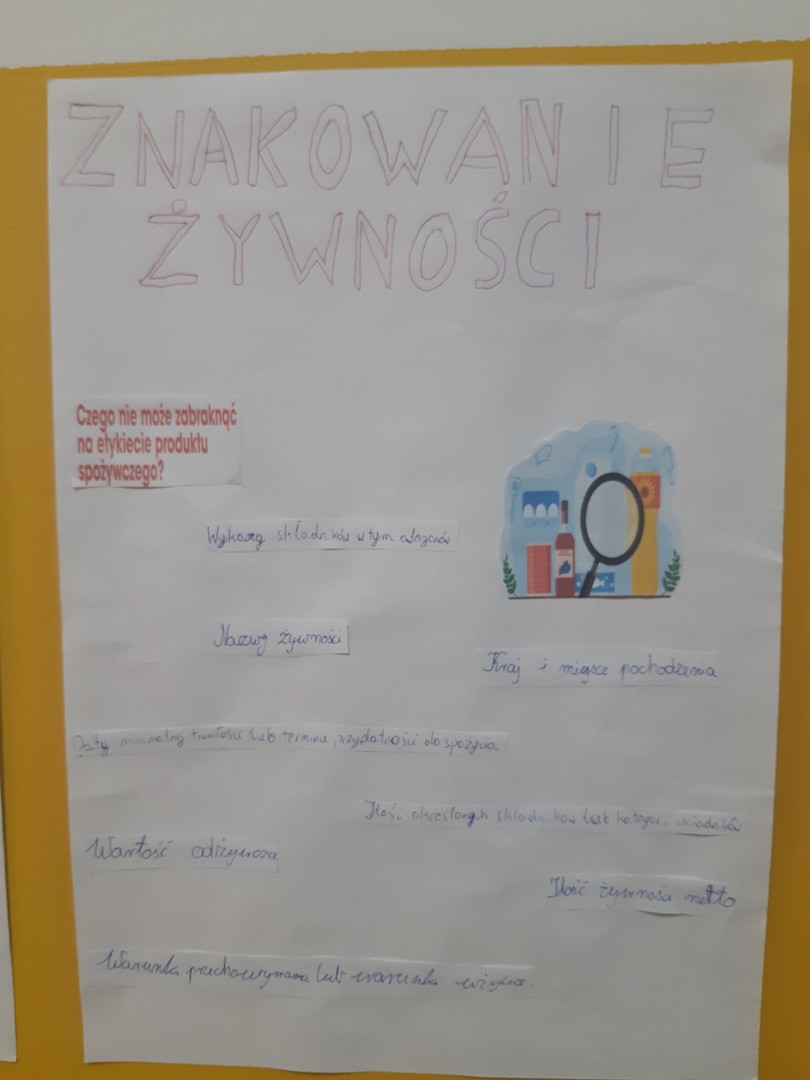 ZNAKOWANIE
ŻYWNOŚCI
Czego nie może zabraknąć
na etykiecie produktu
spożywczego?
Wykazu składników w tym alergenów
Nazwy żywności
Kraj i miejsce pochodzenia
Daty minimalnej trwałości lub terminu przydatności do spożycia
Ilość określonych składników lub kategorii składników
Wartość odżywcza
Ilość żywności netto
Warunki przechowywania lub warunki